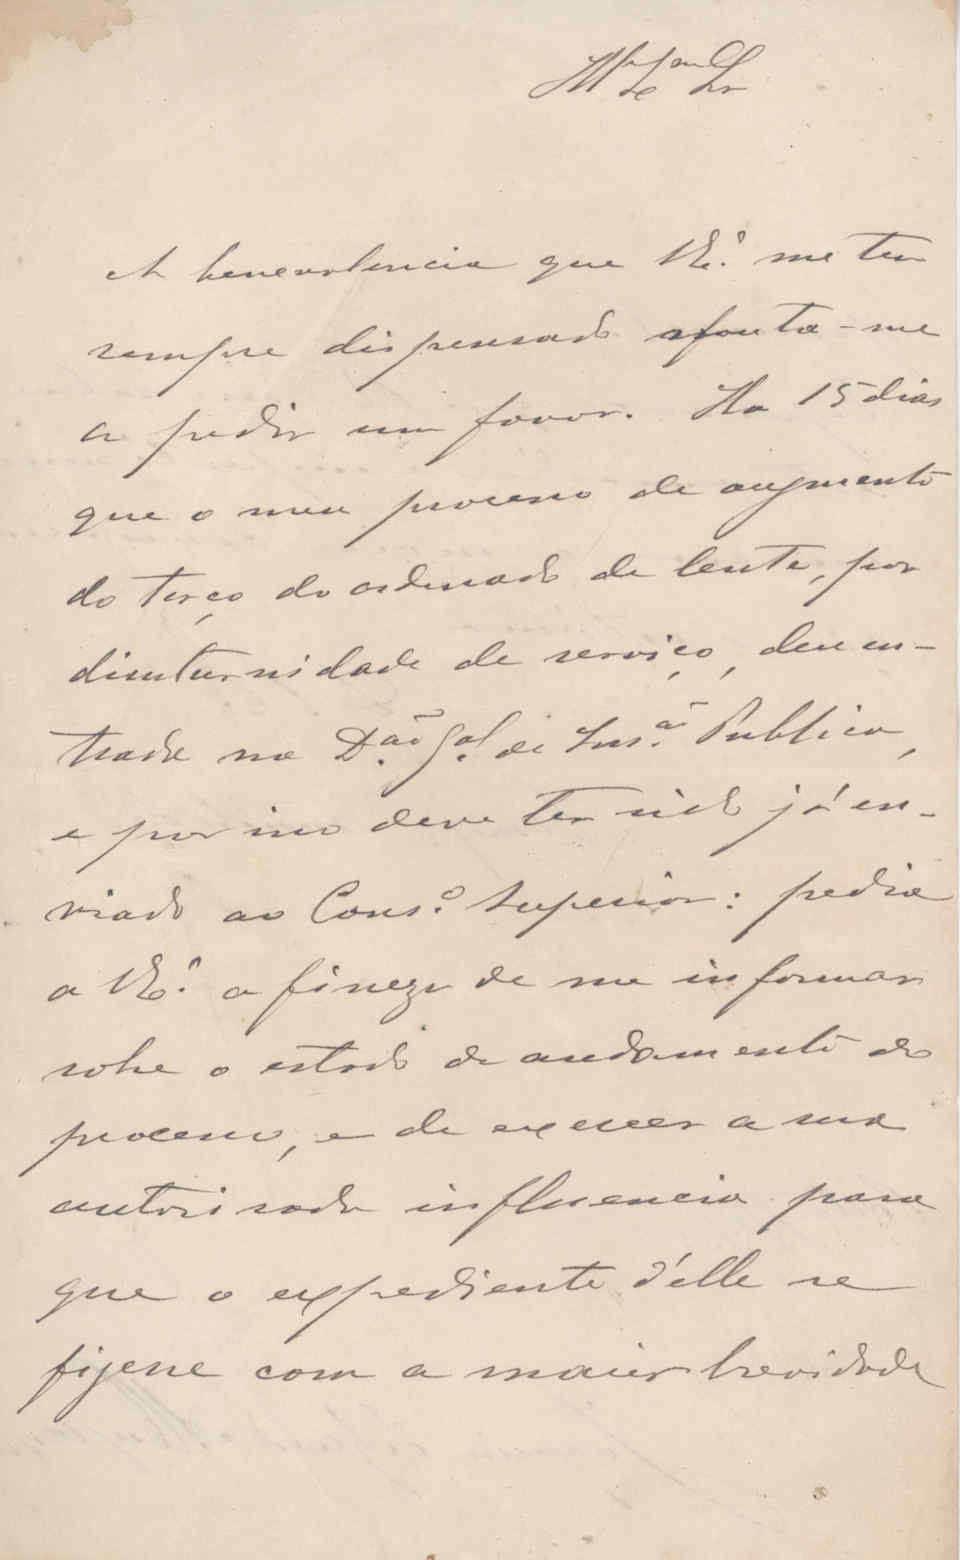 Ill.mo e Ex.mo Sr
A benevolencia que V.E.ª me tem
sempre dispensado afouta-me
a pedir um favor. Ha 15 dias
que o meu processo de augmento
do terço do ordenado de lente, por
diuturnidade de serviço, deu en-
trada na D.ão G.al de Ins.ão Publica,
e por isso deve ter sido já en-
viado ao Cons.º Superior: pedia
a V.E.ª a fineza de me informar
sobre o estado de andamento do
processo, e de exercer a sua
autorisada influencia para
que o expediente d'elle se
fizesse com a maior brevidade